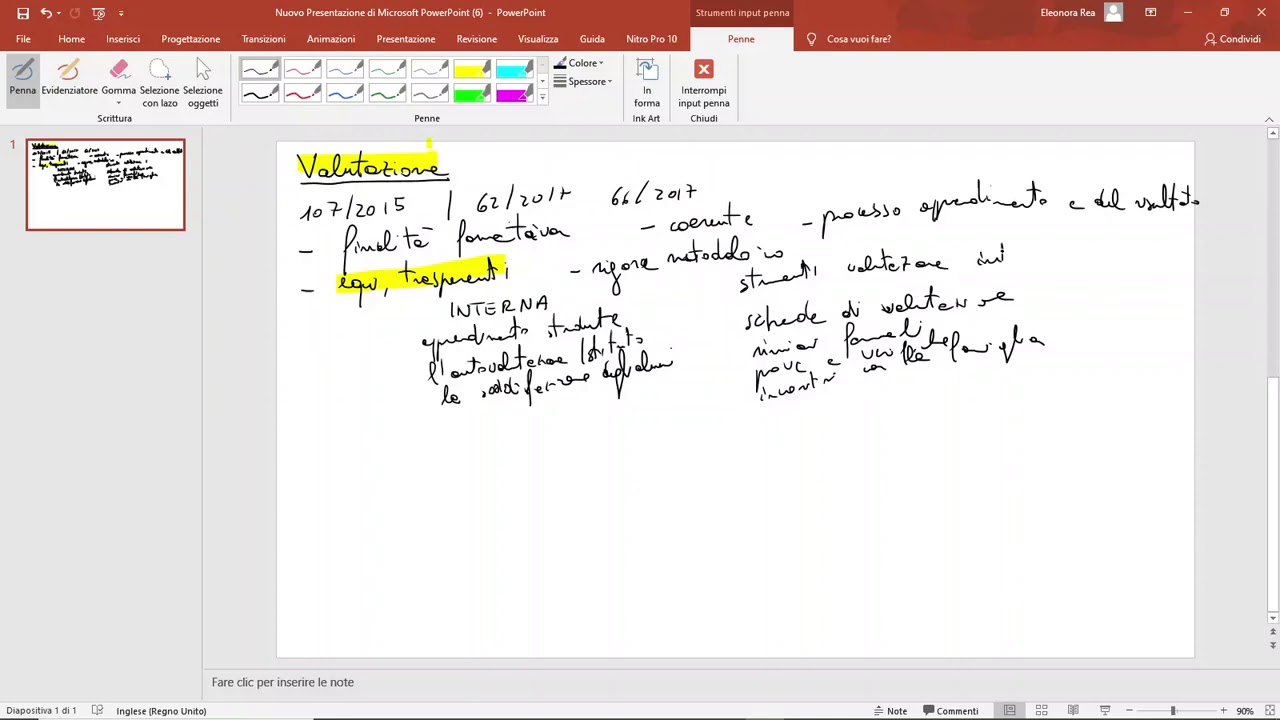 Nuovo Presentazione di Microsoft PowerPoint (6) - PowerPoint
Strumenti input penna
Eleonora Rea
File Home Inserisci Progettazione Transizioni Animazioni Presentazione Revisione Visualizza Guida Nitro Pro 10 Penne Cosa vuoi fare? Condividi
Penna Evidenziatore Gomma Selezione con lazo Selezione oggetti
Colore
Spessore
In forma
Interrompi input penna
Scrittura Penne Ink Art Chiudi
1
Valutazione
107/2015 | 62/2017 66/2017
- finalità formativa - coerente - processo apprendimento e del risultato
- equi, trasparenti - rigore metodologico
strumenti valutazione
INTERNA
schede di valutazione
apprendimento studente
l'autovalutazione Istituto
la soddisfazione degli alunni
riunioni formali
prove e verifiche
incontri con famiglia
Fare clic per inserire le note
Diapositiva 1 di 1 Inglese (Regno Unito) Note Commenti 90%